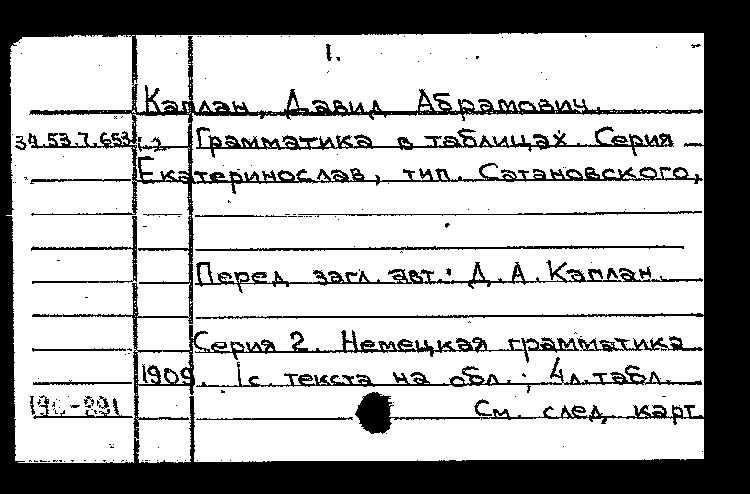 1.
Каплан, Давид Абрамович.
34.53.7.653 1.2 Грамматика в таблицах. Серия —
Екатеринослав, тип. Сатановского,
Перед загл. авт.: Д. А. Каплан.
Серия 2. Немецкая грамматика
1909. 1с. текста на обл.; 4л. табл.
См. след. карт.